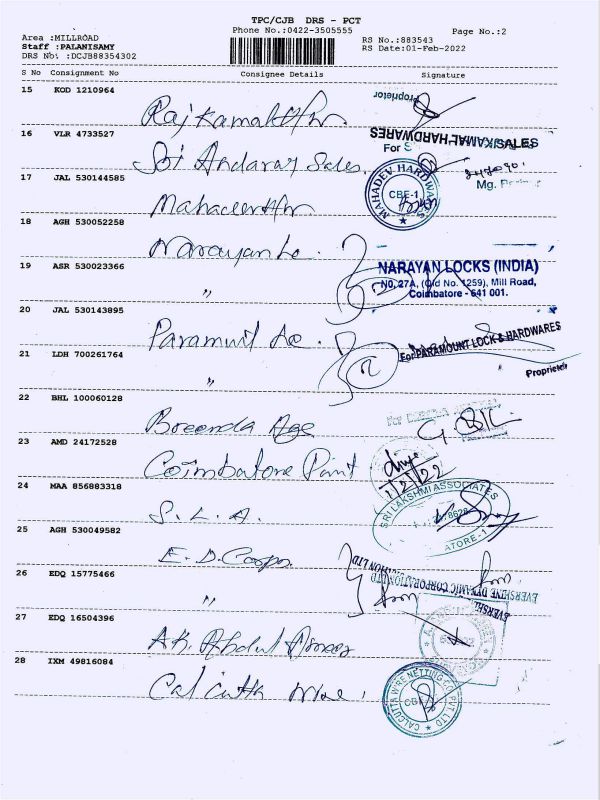 TPC/CJB DRS - PCT
Phone No.:0422-3505555
Page No.:2
Area :MILLROAD
Staff :PALANISAMY
DRS No. :DCJB88354302
RS No.:883543
RS Date:01-Feb-2022
S No Consignment No Consignee Details Signature
15 KOD 1210964
Rajkamal H/w.
Proprietor
16 VLR 4733527
KAMAL HARDWARES
For S SALES
Sri Andavar Sales.
17 JAL 530144585
MAHADEV HARDWARES
CBE-1
Mg.
18 AGH 530052258
Narayan Lo.
19 ASR 530023366
NARAYAN LOCKS (INDIA)
No. 27A, (Old No. 1259), Mill Road,
Coimbatore - 641 001.
"
20 JAL 530143895
21 LDH 700261764
For PARAMOUNT LOCK & HARDWARES
Proprietor
"
22 BHL 100060128
23 AMD 24172528
Coimbatore Paint
1/2/22
24 MAA 856883318
SRI LAKSHMI ASSOCIATES
S.L.A.
25 AGH 530049582
E.D.Corpn
26 EDQ 15775466
EVERSHINE DYNAMIC CORPORATION LTD
"
27 EDQ 16504396
A.K. Abdul
28 IXM 49816084
Calcutta Wire.
CALCUTTA WIRE NETTING CO PVT LTD